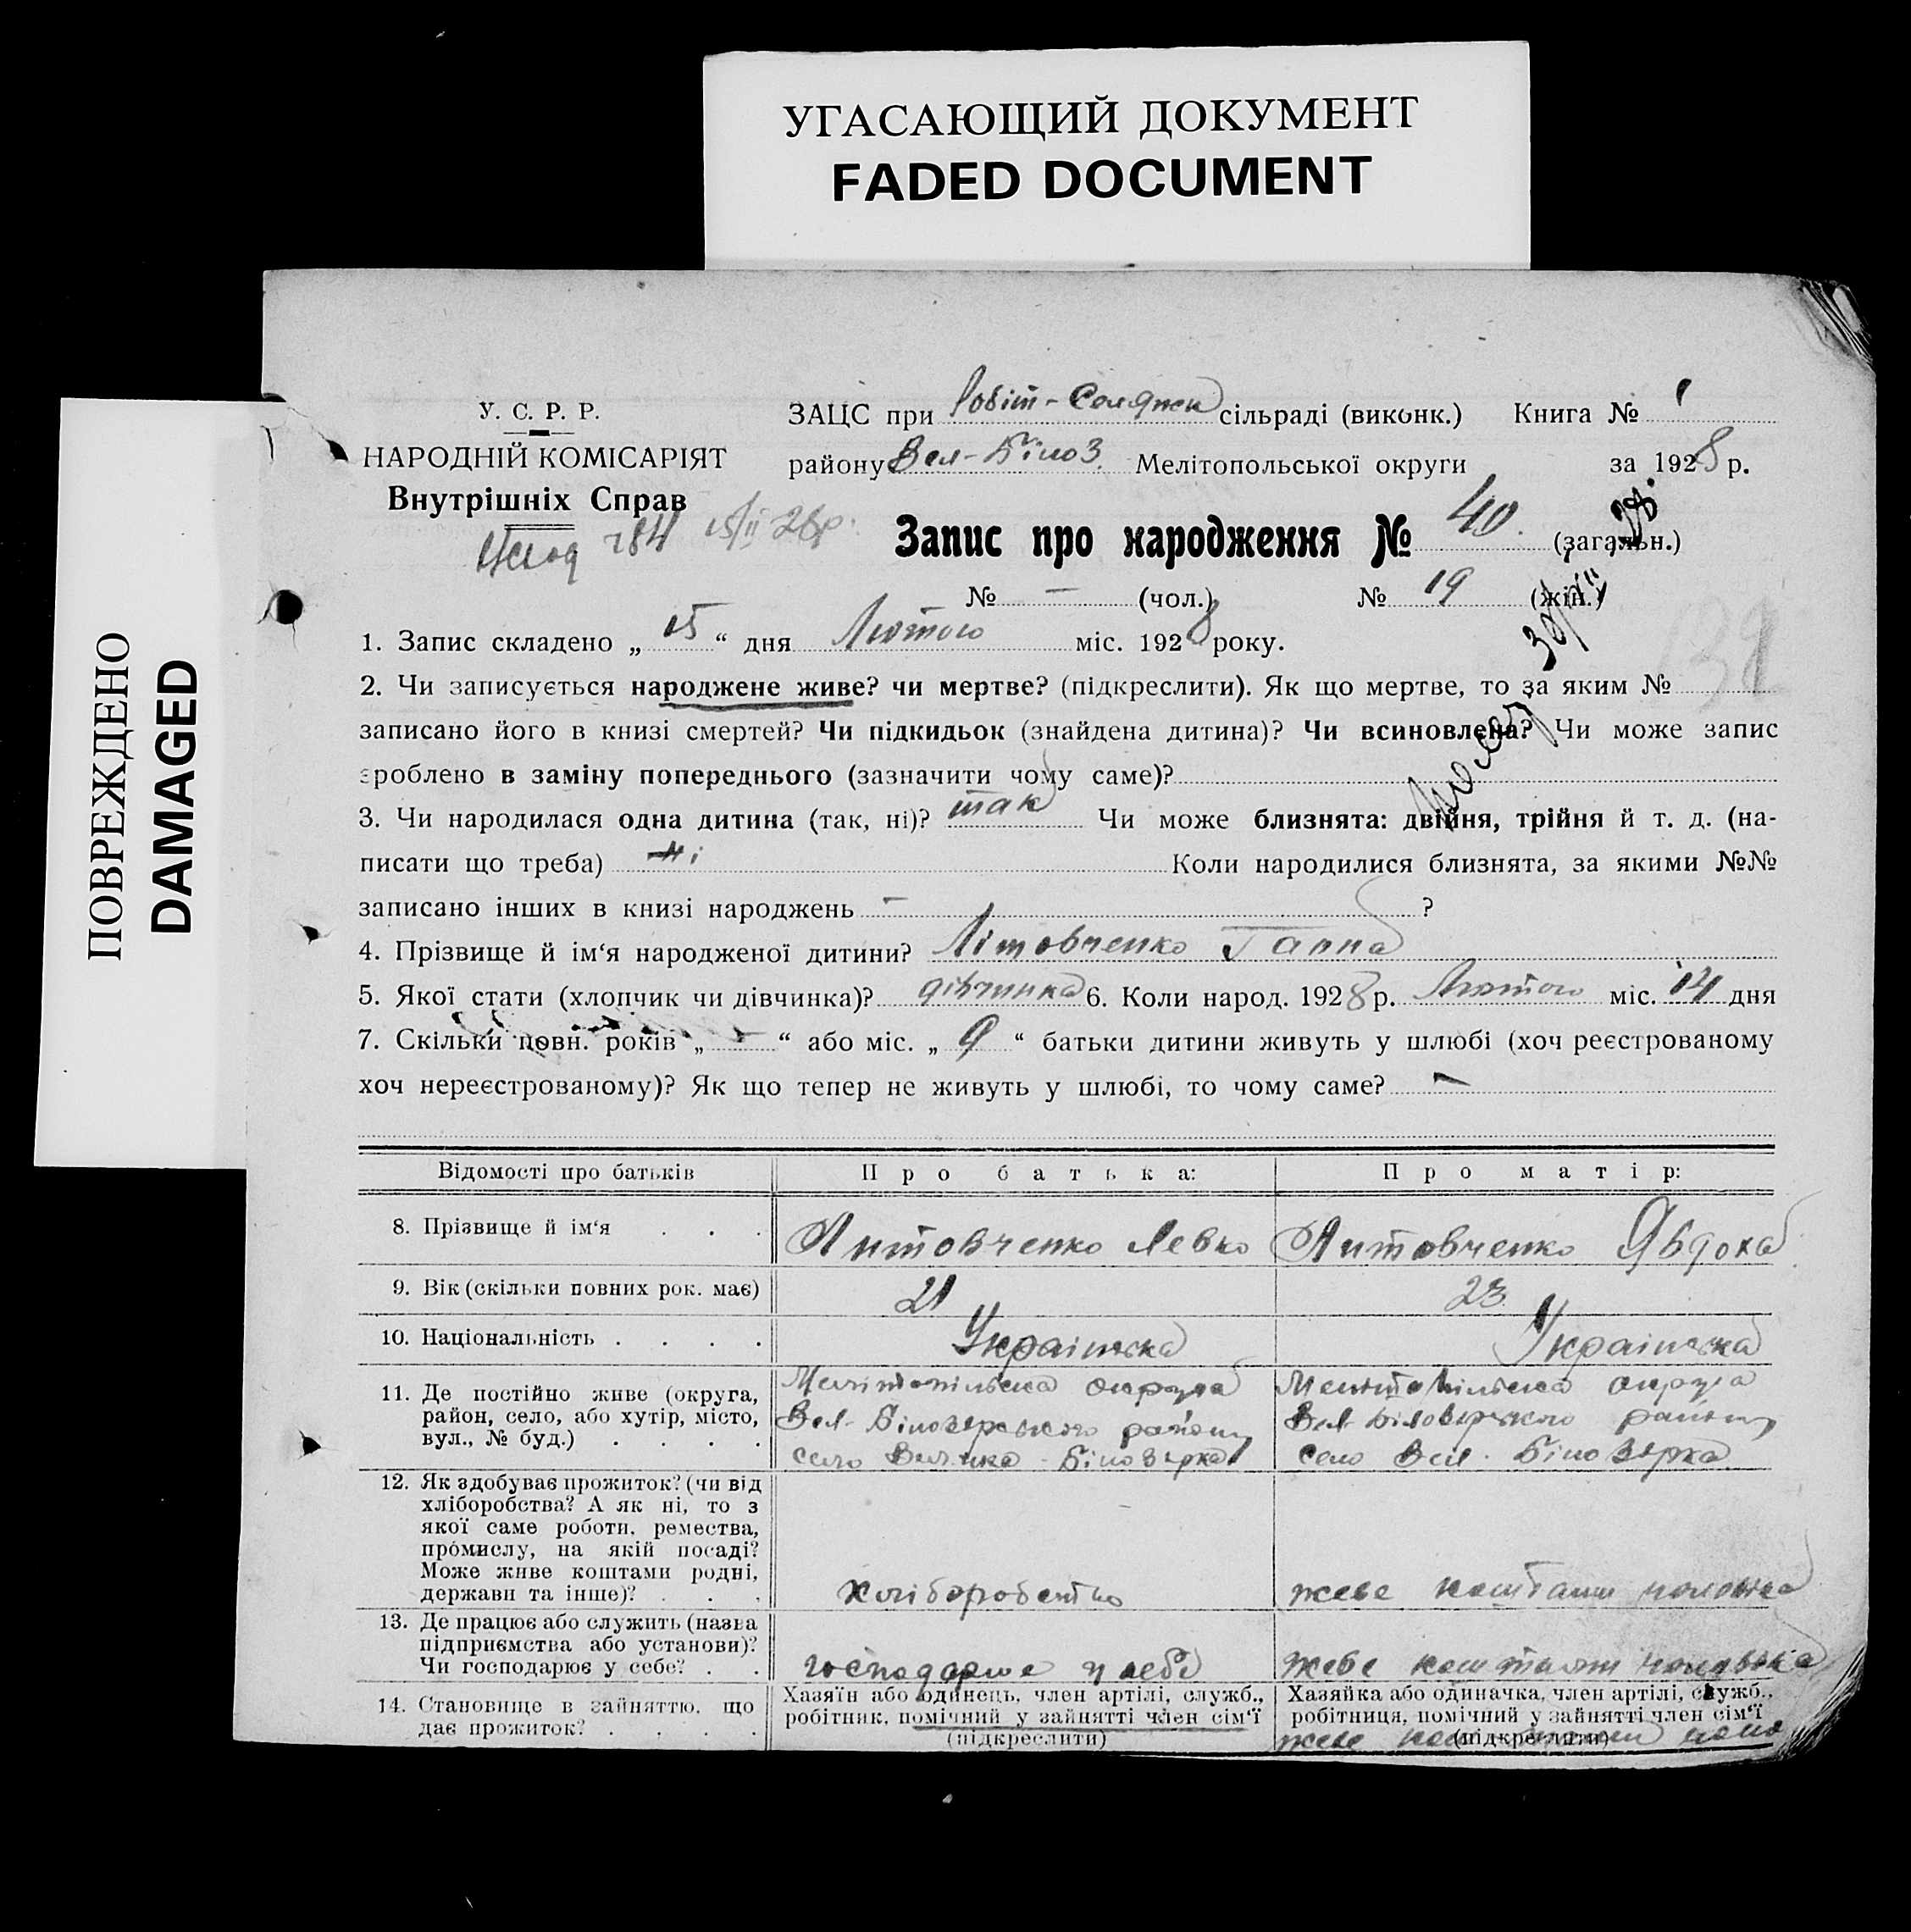 УГАСАЮЩИЙ ДОКУМЕНТ
FADED DOCUMENT
ПОВРЕЖДЕНО
DAMAGED
У. С. Р. Р.
НАРОДНІЙ КОМІСАРІЯТ
Внутрішніх Справ
ЗАЦС при Робіт-Селянськ сільраді (виконк.) Книга № 1
району Вел-Білоз. Мелітопольської округи за 1928 р.
Запис про народження № 40. (загальн.)
№ – (чол.) № 19 (жін.)
1. Запис складено „15“ дня Лютого міс. 1928 року.
2. Чи записується народжене живе? чи мертве? (підкреслити). Як що мертве, то за яким №
записано його в книзі смертей? Чи підкидьок (знайдена дитина)? Чи всиновлена? Чи може запис
зроблено в заміну попереднього (зазначити чому саме)?
3. Чи народилася одна дитина (так, ні)? так Чи може близнята: двійня, трійня й т. д. (на-
писати що треба) ні Коли народилися близнята, за якими №№
записано інших в книзі народжень – ?
4. Прізвище й ім‘я народженої дитини? Літовченко Ганна
5. Якої стати (хлопчик чи дівчинка)? дівчинка 6. Коли народ. 1928 р. Лютого міс. 14 дня
7. Скільки повн. років „ – “ або міс. „ 9 “ батьки дитини живуть у шлюбі (хоч реєстрованому
хоч нереєстрованому)? Як що тепер не живуть у шлюбі, то чому саме? –
Відомості про батьків
Про батька:
Про матір:
8. Прізвище й ім‘я . . .
Литовченко Левко
Литовченко Явдоха
9. Вік (скільки повних рок. має)
21
23
10. Національність . . . .
Українська
Українська
11. Де постійно живе (округа,
район, село, або хутір, місто,
вул., № буд.) . . . .
Мелітопільська округа
Вел-Білозерського району
село Велика-Білозерка
Мелитопільська округа
Вел-Білозерського району
село Вел. Білозерка
12. Як здобуває прожиток? (чи від
хліборобства? А як ні, то з
якої саме роботи, ремества,
промислу, на якій посаді?
Може живе коштами родні,
держави та інше)? . . .
хліборобство
живе коштами чоловіка
13. Де працює або служить (назва
підприємства або установи)?
Чи господарює у себе? . .
господарює у себе
живе коштами чоловіка
14. Становище в зайняттю, що
дає прожиток? . . . .
Хазяїн або одинець, член артілі, служб.,
робітник, помічний у зайнятті член сім‘ї
(підкреслити)
Хазяйка або одиначка, член артілі, служб.,
робітниця, помічний у зайнятті член сім‘ї
(підкреслити)
живе коштами чоло